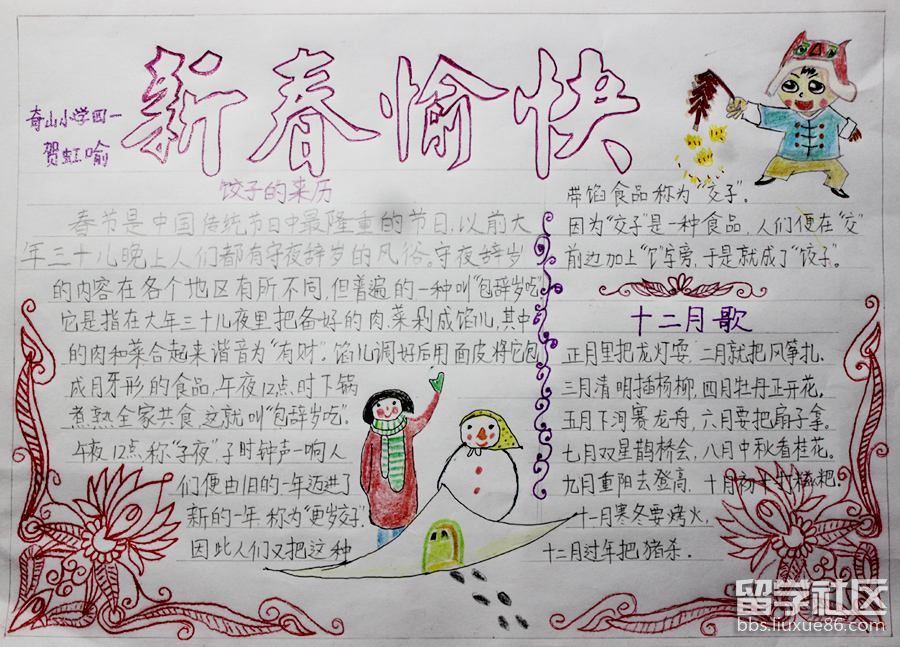 新春愉快
奇山小学四一
贺虹喻
饺子的来历
春节是中国传统节日中最隆重的节日，以前大
年三十儿晚上人们都有守夜辞岁的风俗。守夜辞岁
的内容在各个地区有所不同，但普遍的一种叫“包辞岁吃”
它是指在大年三十儿夜里把备好的肉、菜剁成馅儿，其中
的肉和菜合起来谐音为“有财”。馅儿调好后用面皮将它包
成月牙形的食品，午夜12点时下锅
煮熟全家共食，这就叫“包辞岁吃”。
午夜12点称“子夜”，子时钟声一响人
们便由旧的一年迈进了
新的一年，称为“更岁交子”
因此人们又把这种
带馅食品称为“交子”.
因为“交子”是一种食品，人们便在“交”
前边加上“饣”字旁，于是就成了“饺子。
十二月歌
正月里把龙灯耍，二月就把风筝扎.
三月清明插杨柳，四月牡丹正开花,
五月下河赛龙舟，六月要把扇子拿。
七月双星鹊桥会，八月中秋香桂花。
九月重阳去登高，十月初十打糍粑.
十一月寒冬要烤火,
十二月过年把猪杀.
留学社区
bbs.liuxue86.com